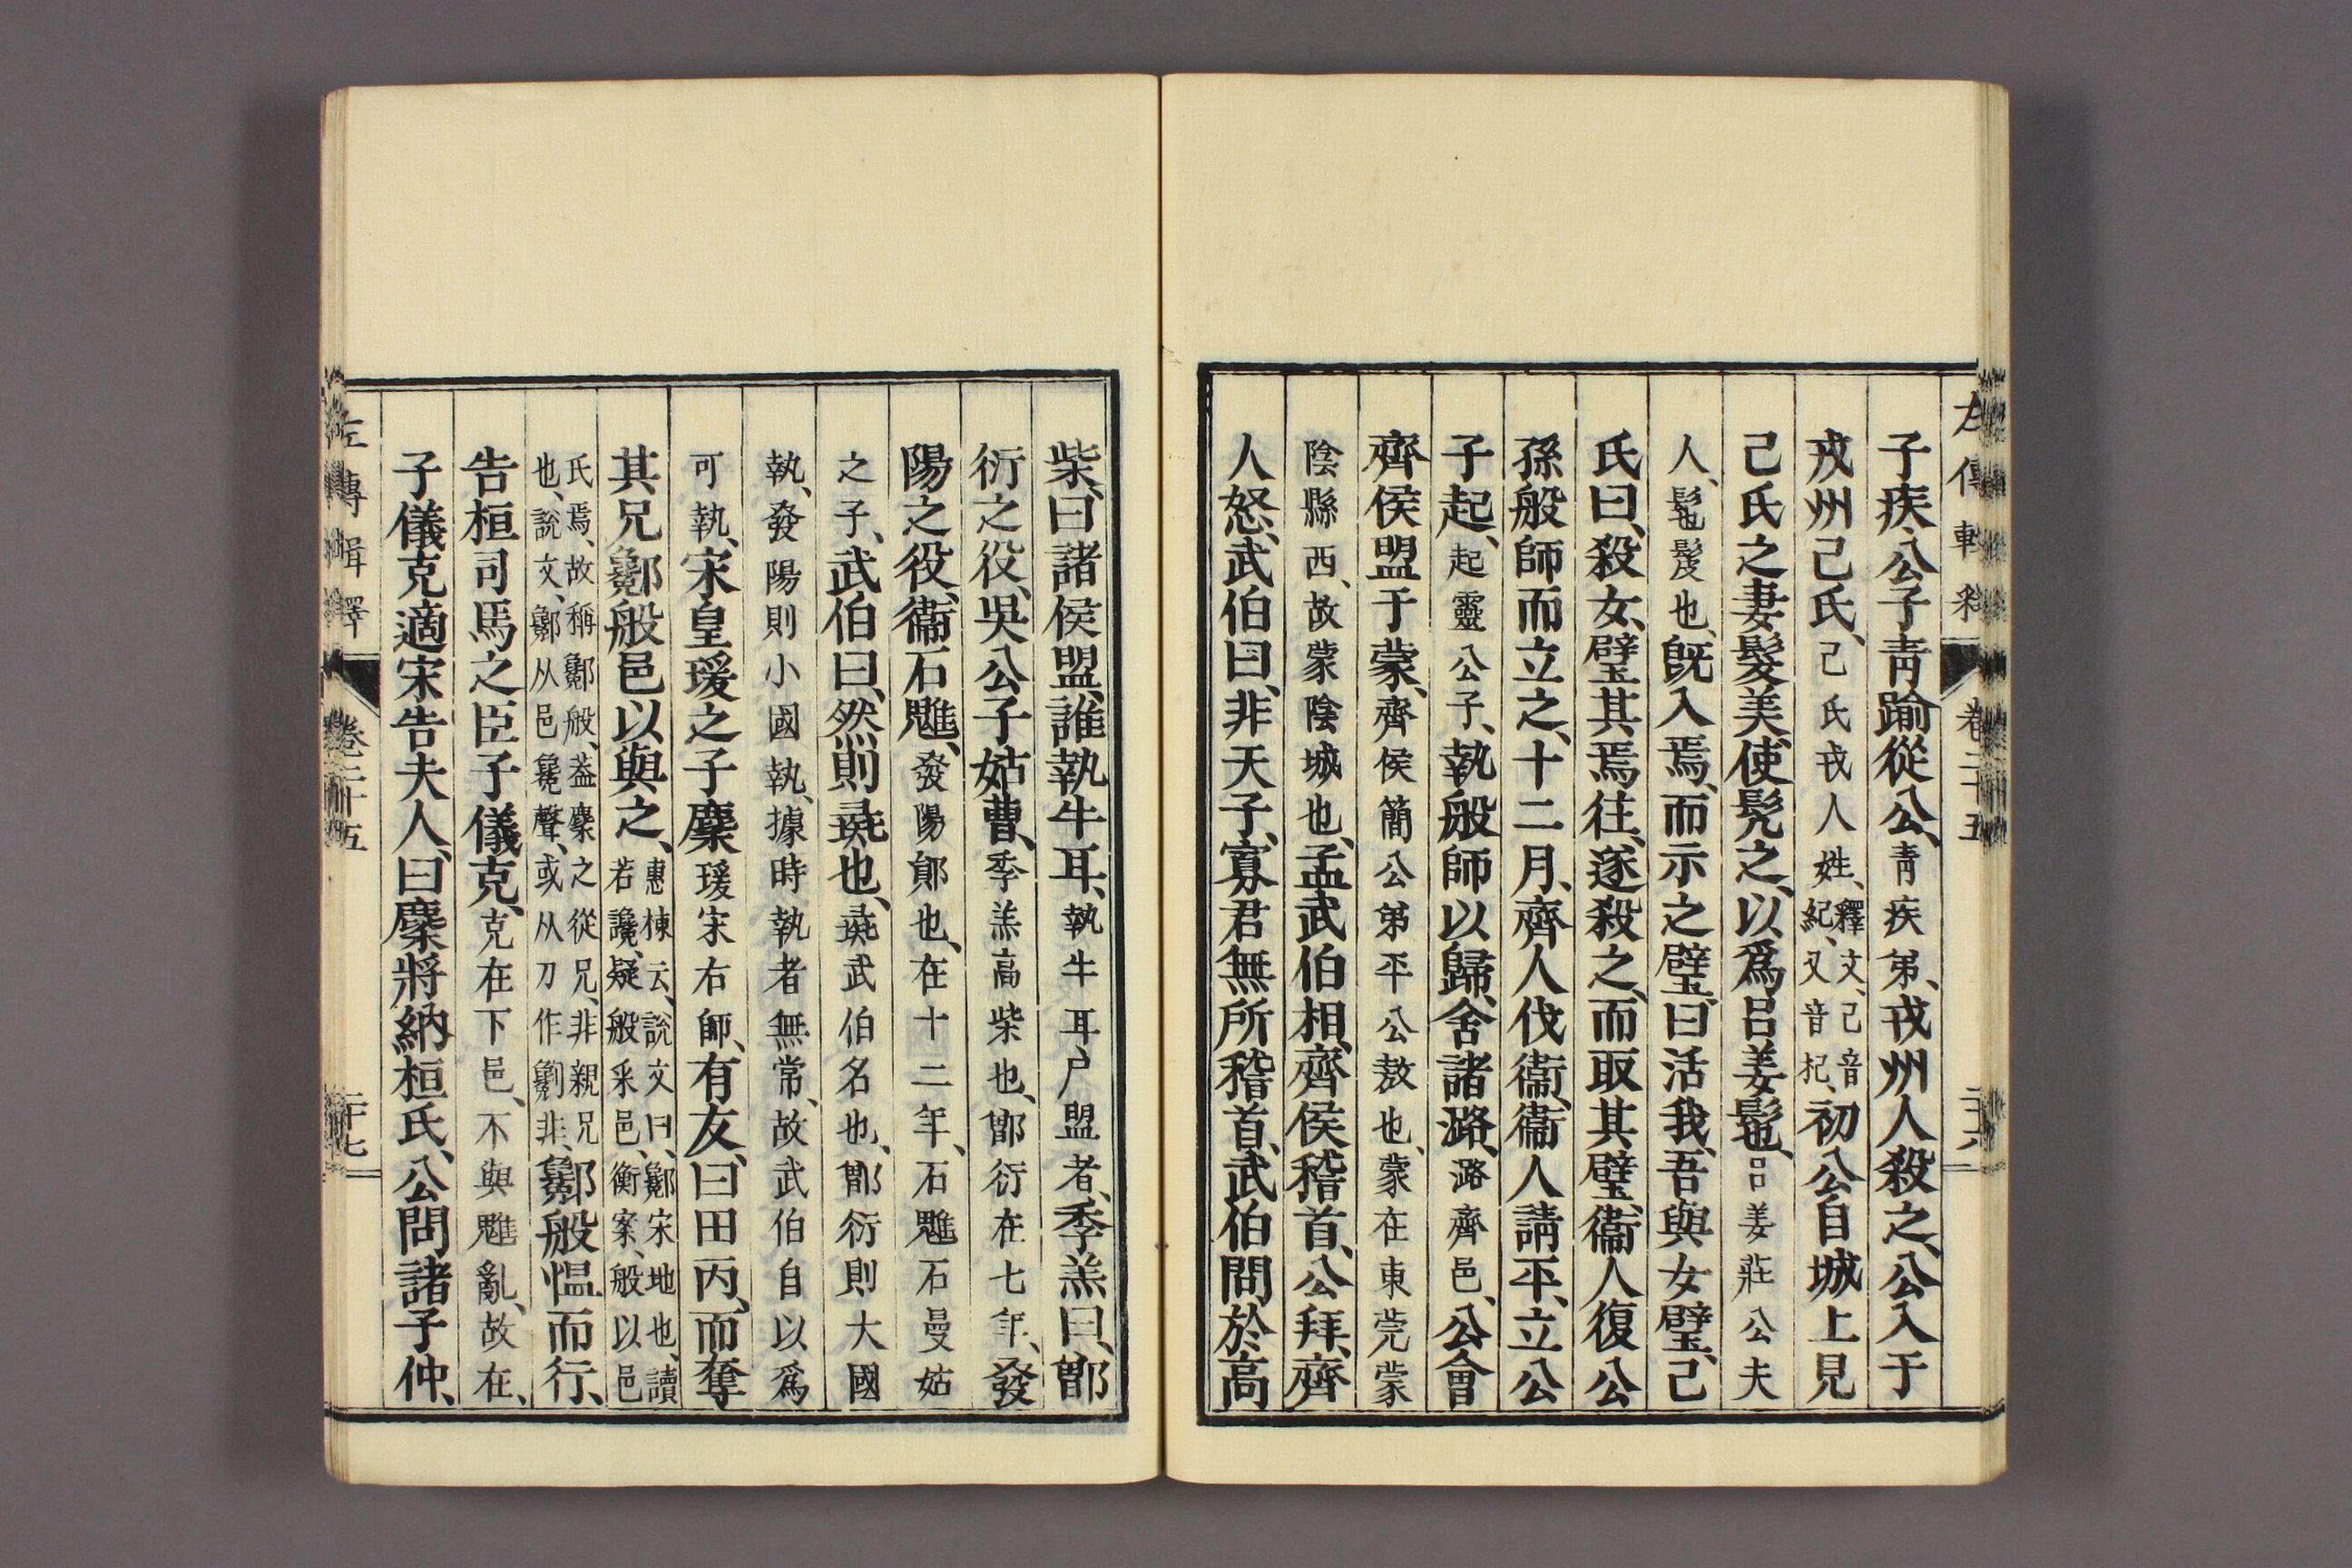 子疾、公子靑踰從公、靑疾弟、戎州人殺之、公入于
戎州己氏、己氏戎人姓、釋文、己音紀、又音杞、初公自城上見
己氏之妻髮美、使髡之、以爲呂姜髢、呂姜莊公夫
人、髢髲也、旣入焉、而示之璧、曰活我、吾與女璧、己
氏曰、殺女、璧其焉往、遂殺之、而取其璧、衞人復公
孫般師而立之、十二月、齊人伐衞、衞人請平、立公
子起、起靈公子、執般師以歸、舍諸潞、潞齊邑、公會
齊侯盟于蒙、齊侯簡公弟平公敖也、蒙在東莞蒙
陰縣西、故蒙陰城也、孟武伯相、齊侯稽首、公拜、齊
人怒、武伯曰、非天子、寡君無所稽首、武伯問於高
柴、曰諸侯盟、誰執牛耳、執牛耳尸盟者、季羔曰、鄫
衍之役、吳公子姑曹、季羔高柴也、鄫衍在七年、發
陽之役、衞石魋、發陽鄖也、在十二年、石魋石曼姑
之子、武伯曰、然則彘也、彘武伯名也、鄫衍則大國
執、發陽則小國執、據時執者無常、故武伯自以爲
可執、宋皇瑗之子麇瑗宋右師、有友、曰田丙、而奪
其兄酁般邑以與之、惠棟云、說文曰、酁宋地也、讀若讒、疑般采邑、衡案、般以邑
氏焉、故稱酁般、蓋麇之從兄、非親兄也、說文、酁从邑毚聲、或从刀作劖非、酁般慍而行、
告桓司馬之臣子儀克、克在下邑、不與魋亂、故在、
子儀克適宋告夫人、曰麇將納桓氏、公問諸子仲、
左傳輯釋 卷二十五 二十七